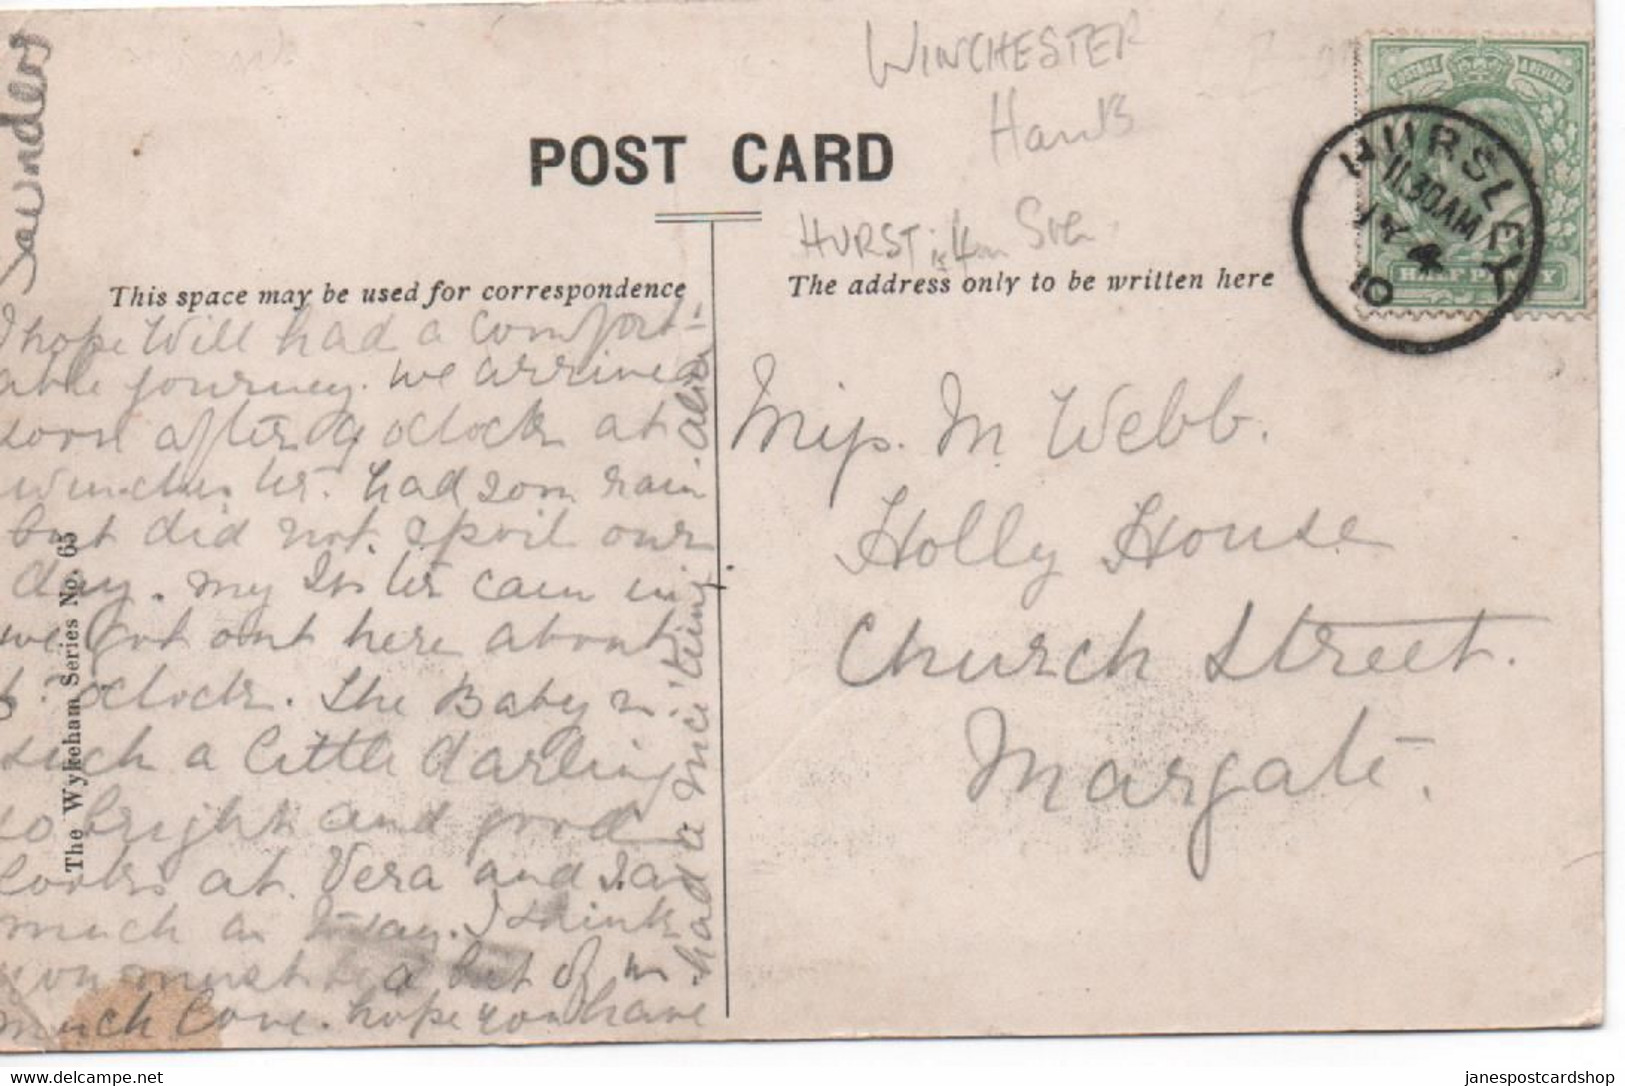 WINCHESTER
Hants
POST CARD
HURST
This space may be used for correspondence
The address only to be written here
HURSLEY
11.30 AM
MY 4
10
POSTAGE & REVENUE
HALF PENNY
Saunders
I hope Will had a comfort-
able journey. we arrived
soon after 9 oclock at
Winchester. had som rain
but did not spoil our
day. my Sister cam in
we got out here about
oclock. The Baby is
such a little darling
so bright and good
looks at Vera and
much as I say. I think
you must a bit of
much love. hope you have
had a nice time
The Wykeham Series No. 65
Miss. M. Webb.
Holly House
Church Street.
Margate.
https://www.delcampe.net
janespostcardshop